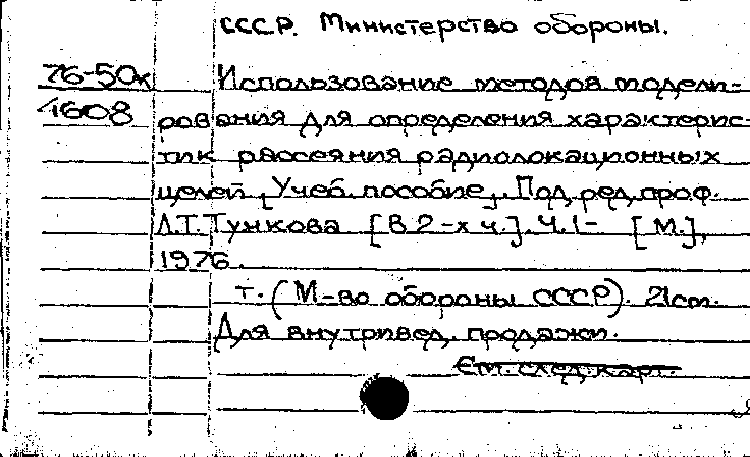 СССР. Министерство обороны.
76-50к Использование методов модели-
4608 рования для определения характерис-
тик рассеяния радиолокационных
целей [Учеб. пособие]. Под ред. проф.
Л.Т. Тучкова [В 2-х ч.]. Ч. 1- [М.],
1976.
т. (М-во обороны СССР). 21 см.
Для внутривед. продажи.
См. след. карт.